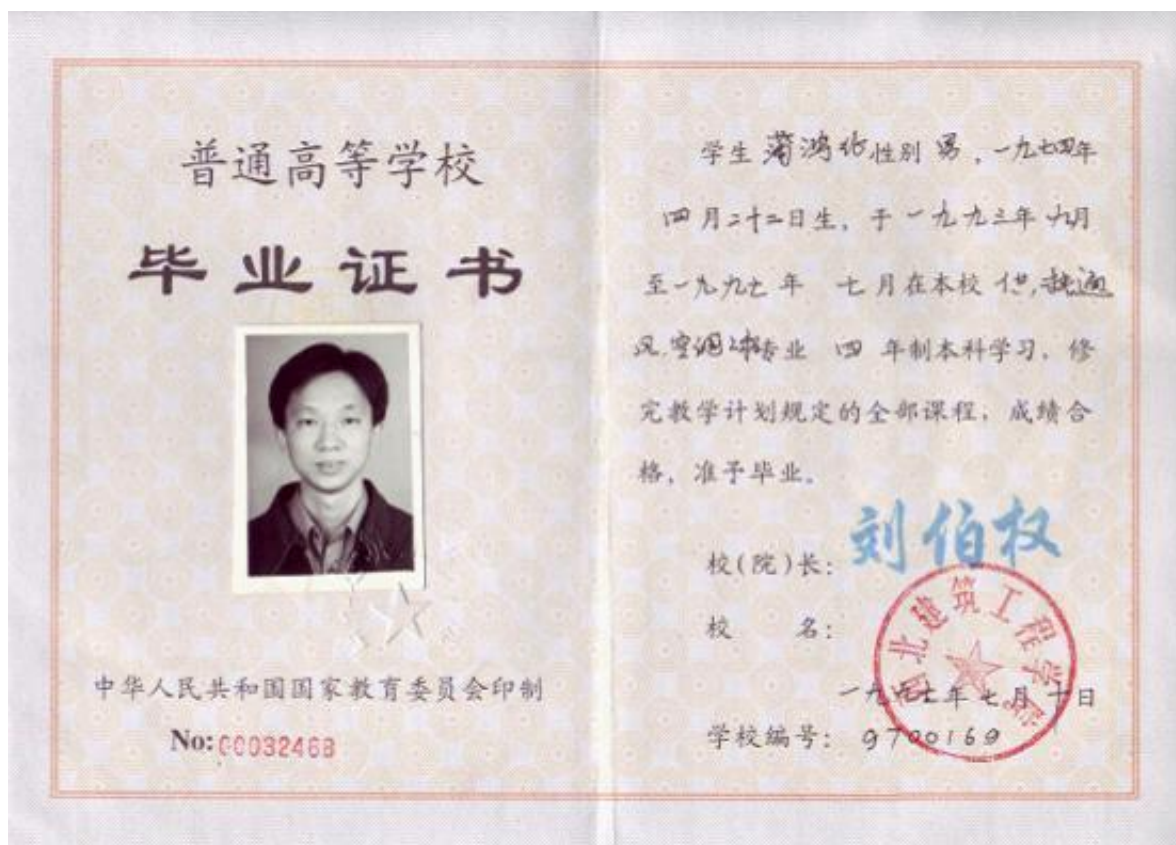 普通高等学校
毕业证书
中华人民共和国国家教育委员会印制
No:00032468
学生 蒲鸿 性别 男，一九七四年
四月二十二日生，于一九九三年九月
至一九九七年 七月在本校 供热通
风空调工程专业 四 年制本科学习，修
完教学计划规定的全部课程，成绩合
格，准予毕业。
校(院)长：刘伯权
校 名：
西北建筑工程学院
一九九七年七月十日
学校编号：9700169